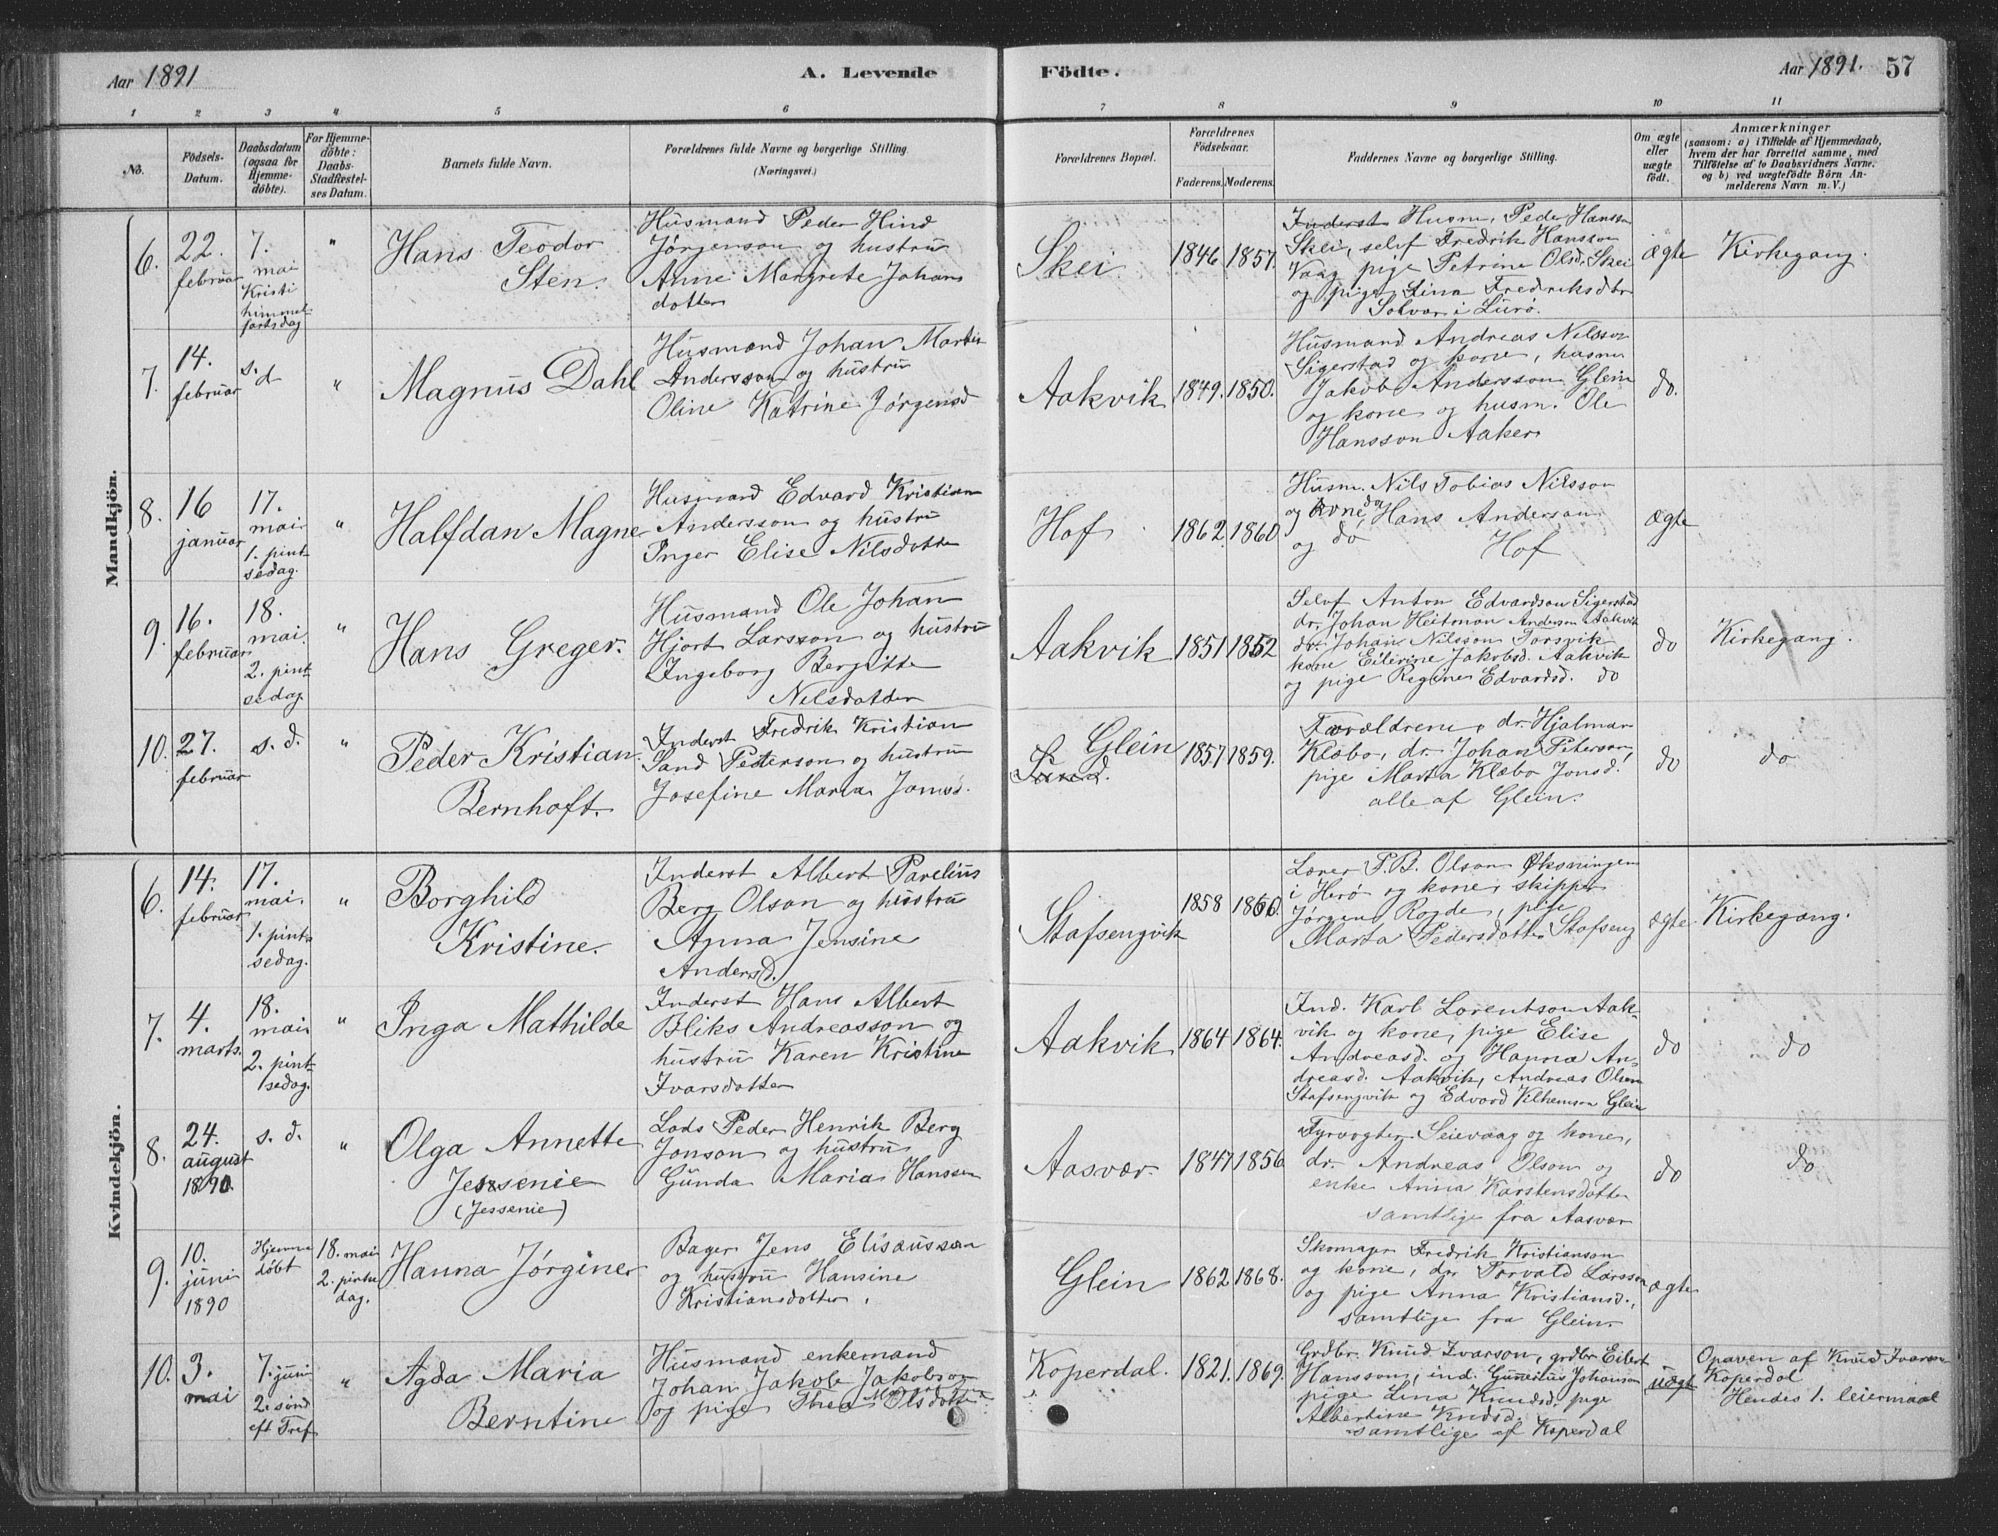 Aar 1891
A. Levende
Födte.
Aar 1891.
57
1 2 3 4 5 6 7 8 9 10 11
No.
Födsels-
Datum.
Daabsdatum
(ogsaa for
Hjemme-
döbte).
For Hjemme-
döbte:
Daabs-
Stadfæstel-
ses Datum.
Barnets fulde Navn.
Forældrenes fulde Navne og borgerlige Stilling.
(Næringsvei.)
Forældrenes Bopæl.
Forældrenes
Födselsaar.
Faderens. Moderens.
Faddernes Navne og borgerlige Stilling.
Om ægte
eller
uægte
födt.
Anmærkninger
(saasom: a) i Tilfælde af Hjemmedaab,
hvem der har forrettet samme, med
Tilföielse af to Daabsvidners Navne.
og b) ved uægtefödte Börn An-
melderens Navn m. V.)
Mandkjön.
6.
22.
februar
7.
mai
Kristi
himmel-
fartsdag
"
Hans Teodor
Sten.
Husmand Peder Hind
Jørgenson og hustru
Anne Margrete Johans
dotter
Skei.
1846 1857.
Inderst Husm. Peder Hanssn
Skei, selvf Fredrik Hansson
Vaag pige Petrine Olsd. Skei
og pige Lina Fredriksdtr
Solvær i Lurø.
ægte
Kirkegang.
7.
14.
februar
s. d
"
Magnus Dahl
Husmand Johan Martin
Andersson og hustru
Oline Katrine Jørgensd
Aakvik
1849. 1850.
Husmand Andreas Nilsson
Sigerstad og kone, husm.
Jakob Andersson Glein
og kone og husm. Ole
Hansson Aaker
do.
8.
16
januar
17.
mai
1. pint
sedag.
"
Halfdan Magne
Husmand Edvard Kristian
Andersson og hustru
Inger Elise Nilsdotter
Hof
1862. 1860
Husm. Nils Tobias Nilsson
og kone, do Hans Anderson
og do Hof
ægte
9.
16.
februar
18.
mai.
2. pint-
sedag.
"
Hans Greger.
Husmand Ole Johan
Hjort Larsson og hustru
Ingeborg Bergitte
Nilsdotter
Aakvik
1851 1852
Selvf Anton Edvardson Sigerstad
dr. Johan Heitman Anderson Aakvik
dr. Johan Nilsson Forsvik
kone Eilerine Jakobsd. Aakvik
og pige Regine Edvardsd. do
do
Kirkegang.
10.
27.
februar
s. d.
"
Peder Kristian
Bernhoft.
Inderst Fredrik Kristian
Sand Peterson og hustru
Josefine Maria Jonsd.
Glein
Sand.
1857 1859.
Forældrene, dr. Hjalmar
Klæbo, dr. Johan Peterson,
pige Marta Klæbo Jonsd.
alle af Glein.
do
do
Kvindekjön.
6.
14.
februar
17.
mai.
1. pint-
sedag.
"
Borghild
Kristine.
Inderst Albert Parelius
Berg Olson og hustru
Anna Jensine
Andersd.
Stafsengvik
1858 1860.
Lærer P. B. Olson Øksningen
i Herø og kone, skipper
Jørgen Rorde, pige
Marta Pedersdotter Stafseng
ægte
Kirkegang.
7.
4.
marts.
18.
mai
2. pint-
sedag.
"
Inga Mathilde
Inderst Hans Albert
Bliks Andreasson og
hustru Karen Kristine
Ivarsdotter
Aakvik
1864 1864.
Ind. Karl Lorentson Aak-
vik og kone, pige Elise
Andreasd. og Hanna An-
dreasd. Aakvik, Andreas Olsen
Stafsengvik og Edvard Vilhemson Glein
do
do
8.
24.
august
1890.
s. d.
"
Olga Annette
Jessenie
(Jessenie)
Lods Peder Henrik Berg
Jonson og hustru
Gunda Maria Hanssen
Aasvær.
1847 1856
Fyrvogter Seievaag og kone,
dr. Andreas Olson og
enke Anna Karstensdotter
samtlige fra Aasvær
do
do
9.
10.
juni
1890
Hjemme
døbt
18. mai
2. pintse
dag.
Hanna Jørgine
Bager Jens Elisæusson
og hustru Hansine
Kristiansdotter.
Glein
1862 1868.
Skomager Fredrik Kristianson
og kone, dr Torvald Larsson
og pige Anna Kristiansd.,
samtlige fra Glein.
ægte
10.
3.
mai
7. juni
2. sønd
eft Tref
"
Agda Maria
Berntine
Husmand enkemand
Johan Jakob Jakobson
og pige Thea M Olsdotter
Koperdal.
1821. 1869.
Grdbr. Knud Ivarson, grdbr Eilert
Hansson, ind. Gunerius Johanson
pige Lina Knudsd. pige
Albertine Knudsd.
samtlige af Koperdal
uægte
Opgaven af Knud Ivarson
Koperdal
Hendes 1. leiermaal